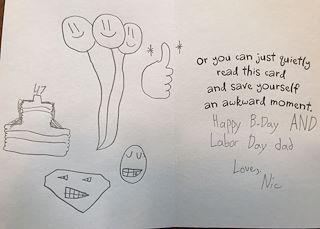 47
Or you can just quietly
read this card
and save yourself
an awkward moment.
Happy B-Day AND
Labor Day dad
Love,
Nic